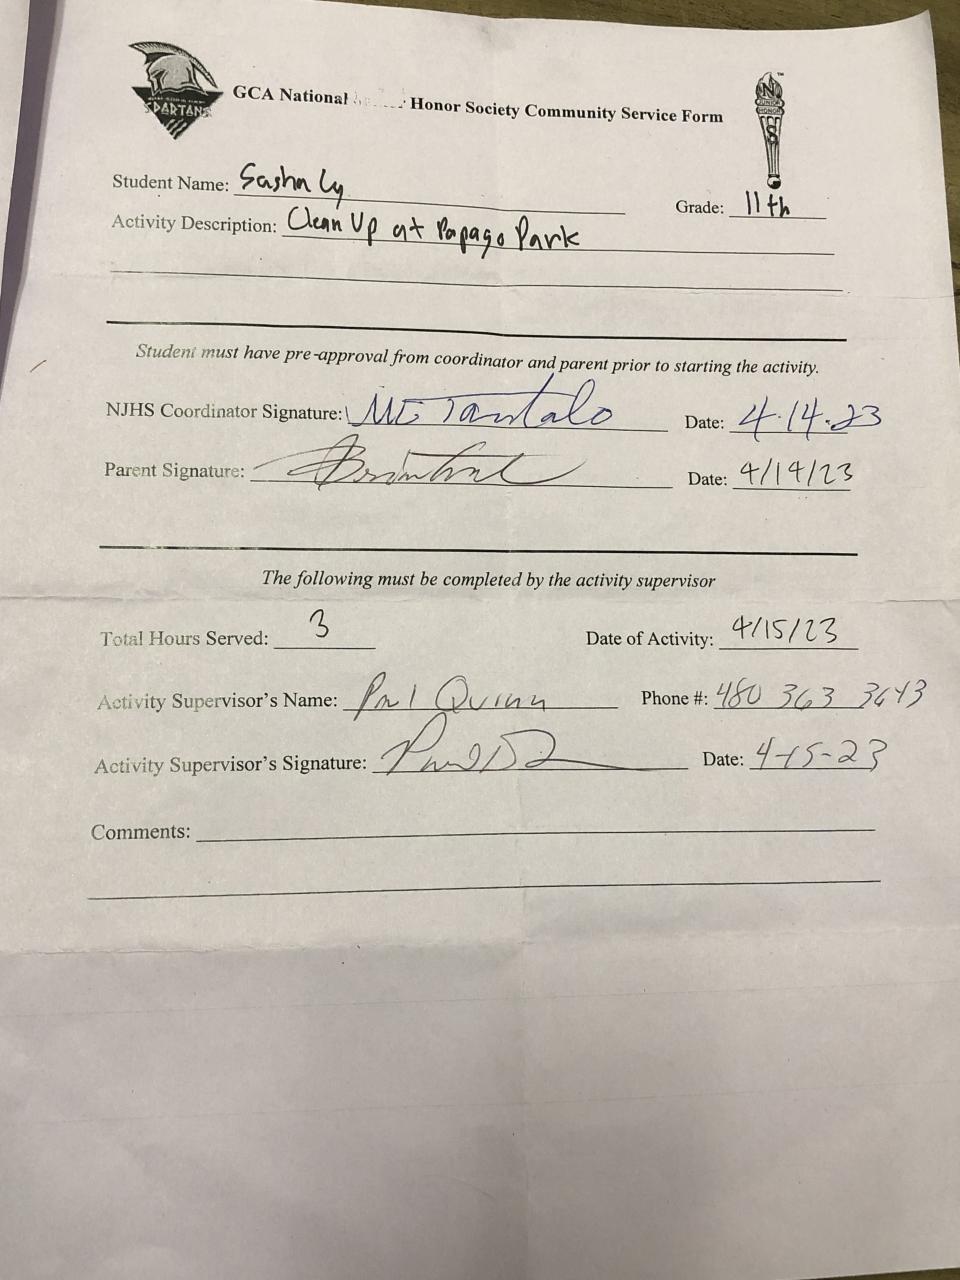 SPARTANS
GCA National Honor Society Community Service Form
N
JUNIOR
HONOR
S
Student Name: Sasha Ly
Grade: 11th
Activity Description: Clean Up at Papago Park
Student must have pre-approval from coordinator and parent prior to starting the activity.
NJHS Coordinator Signature: Tantalo Date: 4-14-23
Parent Signature: Date: 4/14/23
The following must be completed by the activity supervisor
Total Hours Served: 3 Date of Activity: 4/15/23
Activity Supervisor's Name: Paul Quinn Phone #: 480 363 3643
Activity Supervisor's Signature: Date: 4-15-23
Comments: